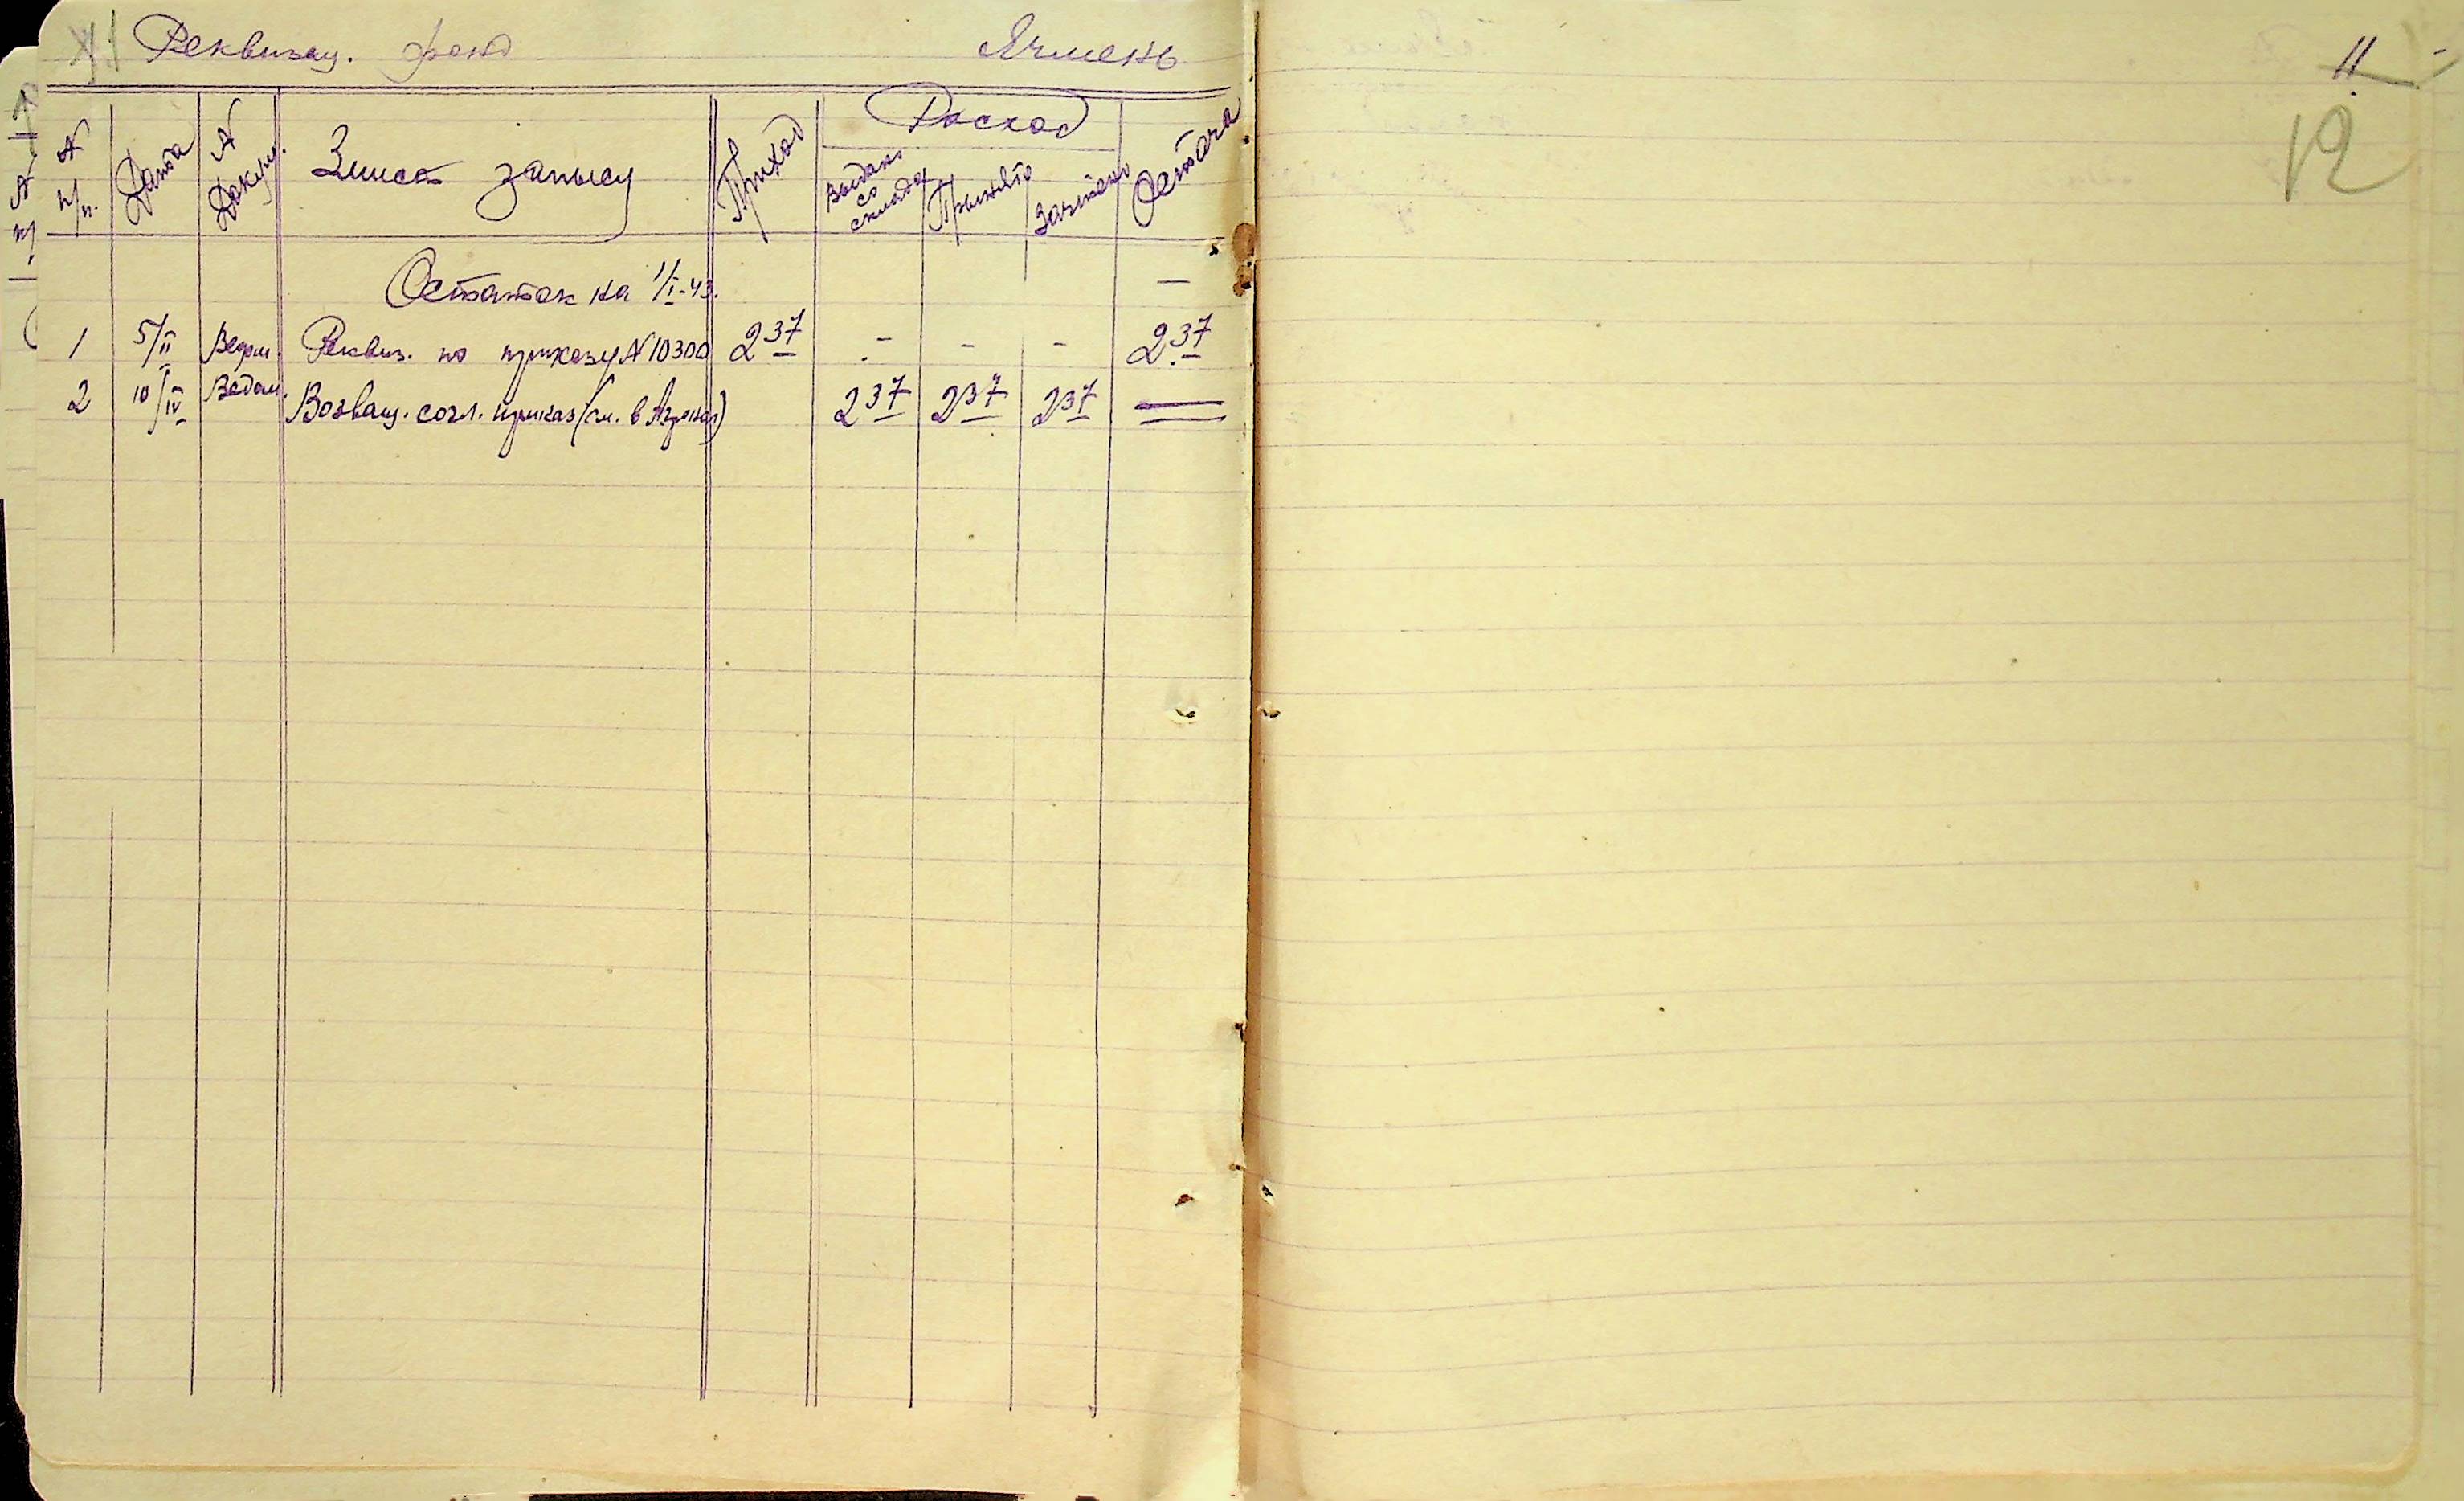 Реквизац. фонд Ячмень
11
12
№ п/п. Дата № Докум. Зміст запису Приход Расход Остача
Выдано со склада Принято Зачтено
Остаток на 1/I-43. —
1 5/II Ведом. Реквиз. по приказу № 10300 2 37 - - - 2 37
2 10/IV Ведом. Возващ. согл. приказ (см. в Арихал) 2 37 2 37 2 37 —